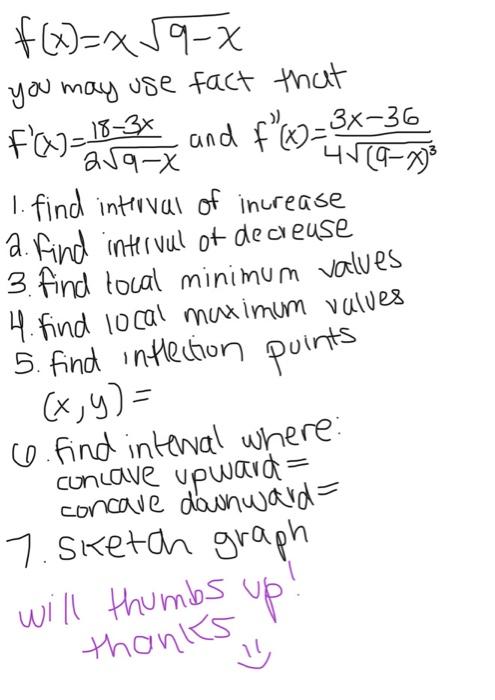 f(x)=x√9-x
you may use fact that
f'(x)=18-3x/2√9-x and f''(x)=3x-36/4√(9-x)³
1. find interval of increase
2. find interval of decrease
3. find local minimum values
4. find local maximum values
5. find inflection points
(x,y)=
6. find interval where:
concave upward=
concave downward=
7. sketch graph
will thumbs up!
thanks